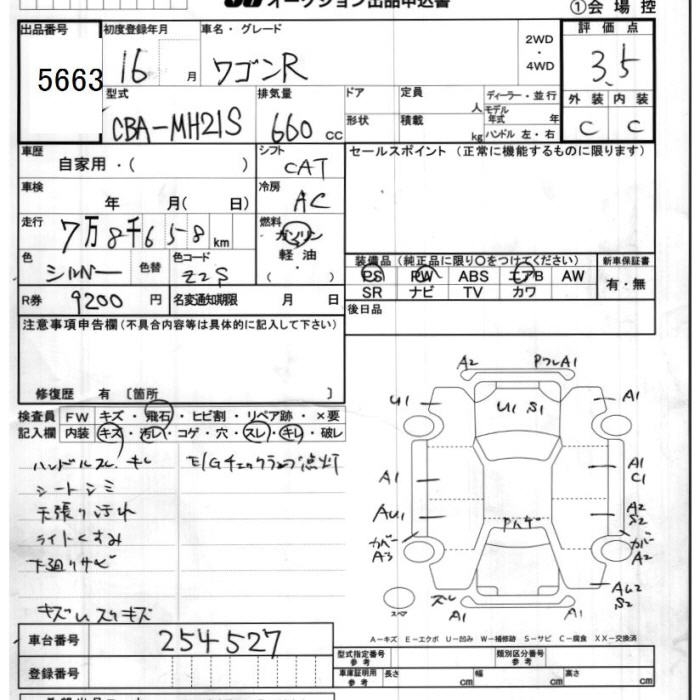 オークション出品申込書
①会場控
出品番号 初度登録年月 車名・グレード 2WD・4WD 評価点
5663 16 月 ワゴンR 3.5
型式 排気量 ドア 定員 人 ディーラー・並行 外装 内装
モデル年式 年
CBA-MH21S 660 cc 形状 積載 kg ハンドル 左・右 C C
車歴 シフト セールスポイント (正常に機能するものに限ります)
自家用・( ) CAT
車検 冷房
年 月( 日) AC
走行 燃料
7万8千658km ガソリン
軽油
色 色替 色コード ・
シルバー Z2S ( )
装備品 (純正品に限り○をつけてください) 新車保証書
PS PW ABS エアB AW 有・無
SR ナビ TV カワ
R券 9200 円 名変通知期限 月 日
後日品
注意事項申告欄(不具合内容等は具体的に記入して下さい)
修復歴 有 〔箇所 〕
検査員 FW キズ・飛石・ヒビ割・リペア跡・×要
記入欄 内装 キズ・汚レ・コゲ・穴・スレ・キレ・破レ
ハンドルスレ、キレ E/Gチェックランプ点灯
シートシミ
天張り汚れ
ライトくすみ
下廻りサビ
キズU スリキズ
A2 PフレA1
U1 U1 S1 A1
A1 A1
C1
AU1 A2
S2
Pハゲ
カバー カバー
A3 A2
スペア ズレ A1 A1 AU2
S2
A-キズ E-エクボ U-凹み W-補修跡 S-サビ C-腐食 XX-交換済
車台番号 254527
型式指定番号 参考 類別区分番号 参考
登録番号 車庫証明用 参考 長さ cm 幅 cm 高さ cm